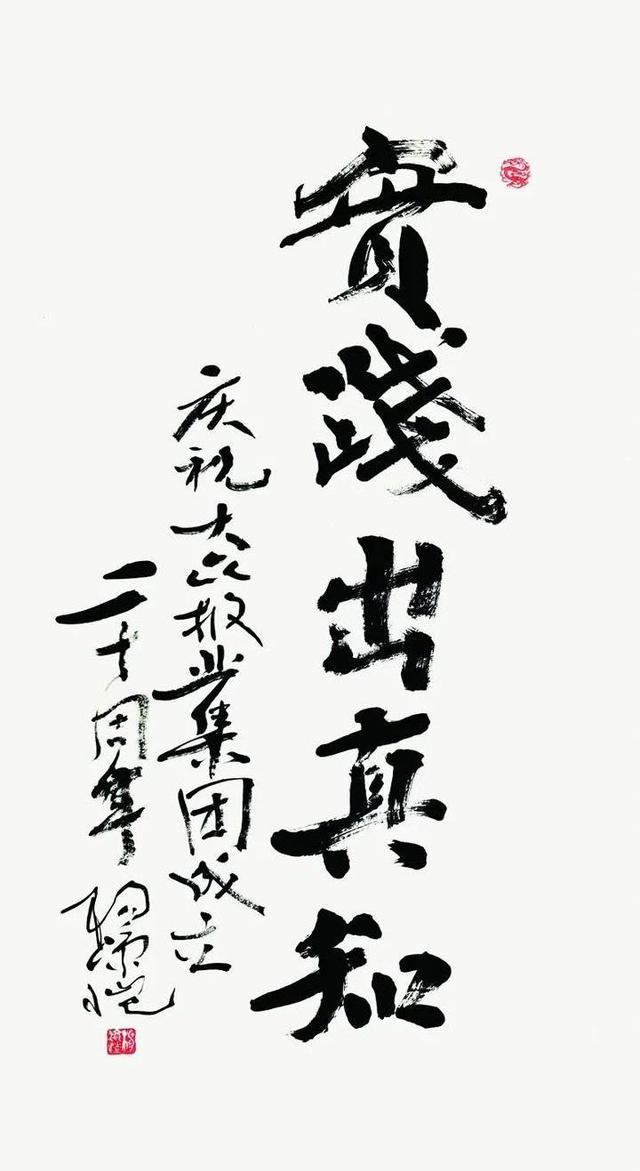 實踐出真知
庆祝大众报业集团成立
二十周年